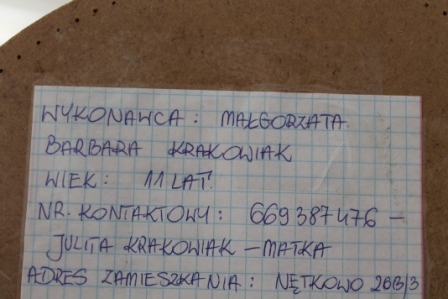 WYKONAWCA: MAŁGORZATA
BARBARA KRAKOWIAK
WIEK: 11 LAT.
NR. KONTAKTOWY: 669387476 –
JULITA KRAKOWIAK – MATKA
ADRES ZAMIESZKANIA: NĘTKOWO